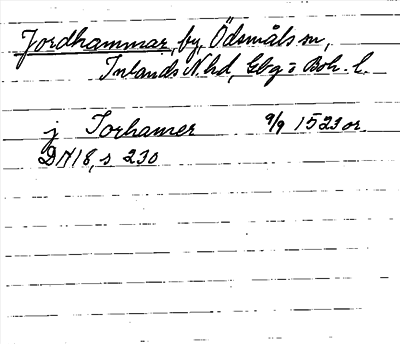 Jordhammar, by, Ödsmåls sn,
Inlands N. hd, Gbg o Boh. l.
j Torhamer 9/9 1523 or.
DN 18, s 230